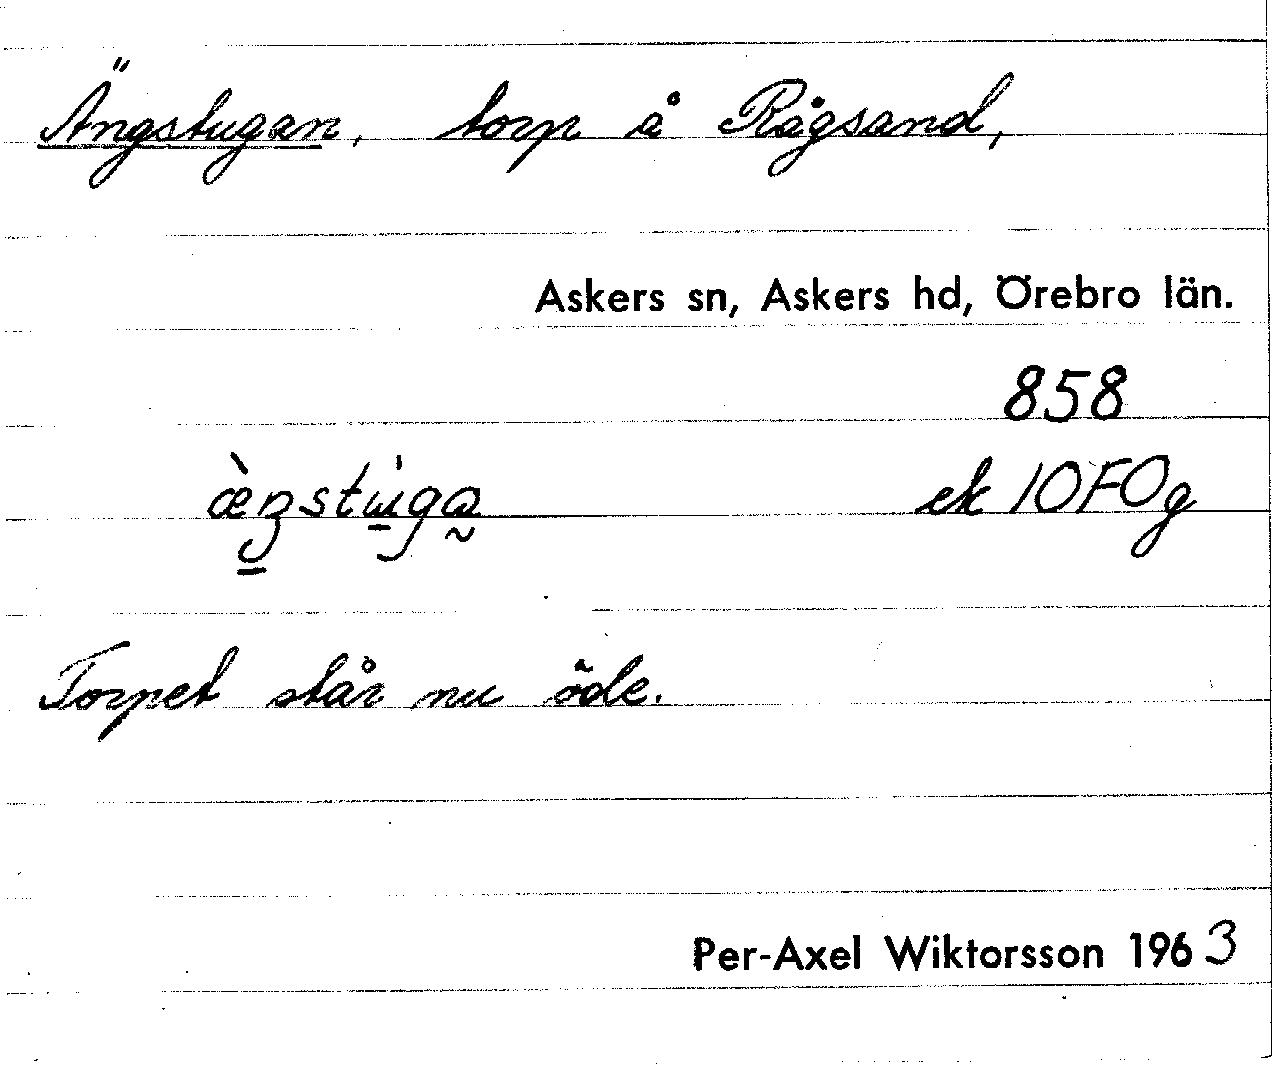 Ängstugan, torp å Rågsand,
Askers sn, Askers hd, Örebro län.
858
æ̀ŋstu̇ga ek 10F0g
Torpet står nu öde.
Per-Axel Wiktorsson 1963